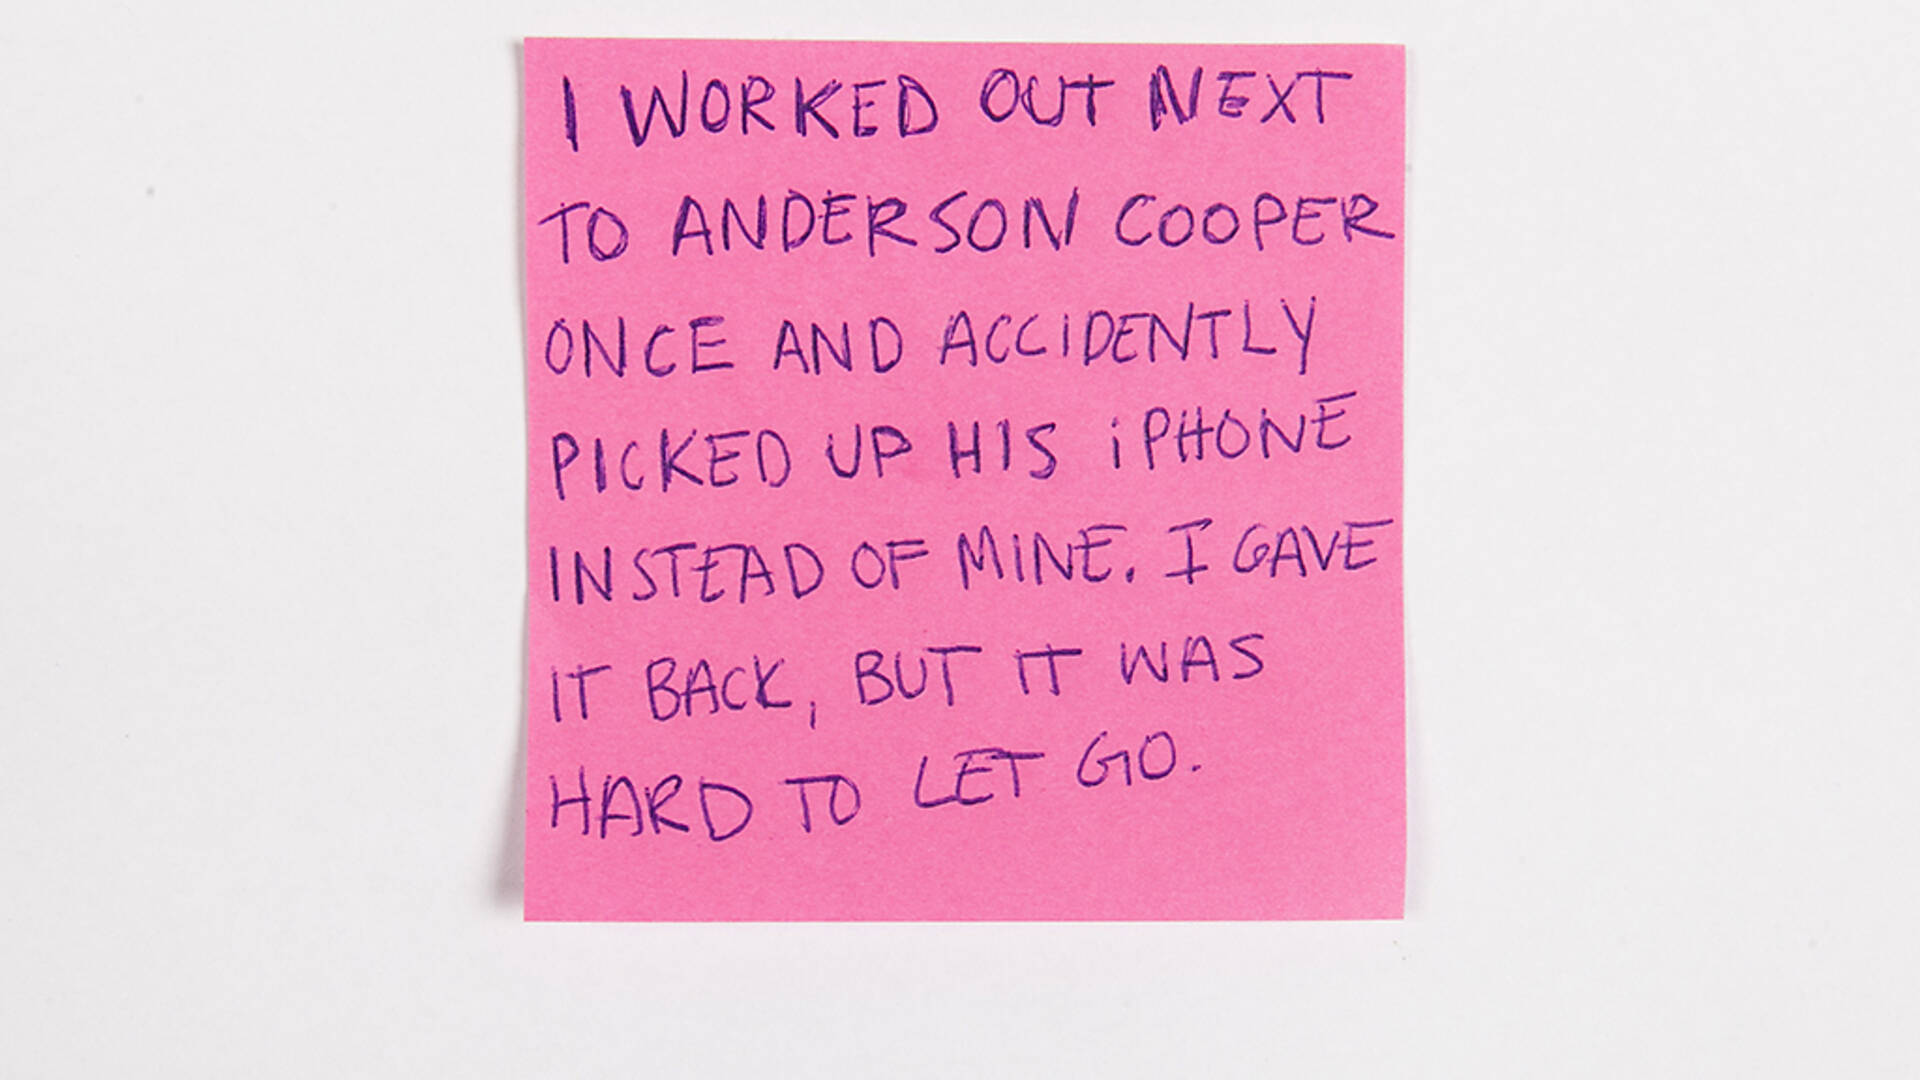 I WORKED OUT NEXT
TO ANDERSON COOPER
ONCE AND ACCIDENTLY
PICKED UP HIS iPHONE
INSTEAD OF MINE. I GAVE
IT BACK, BUT IT WAS
HARD TO LET GO.